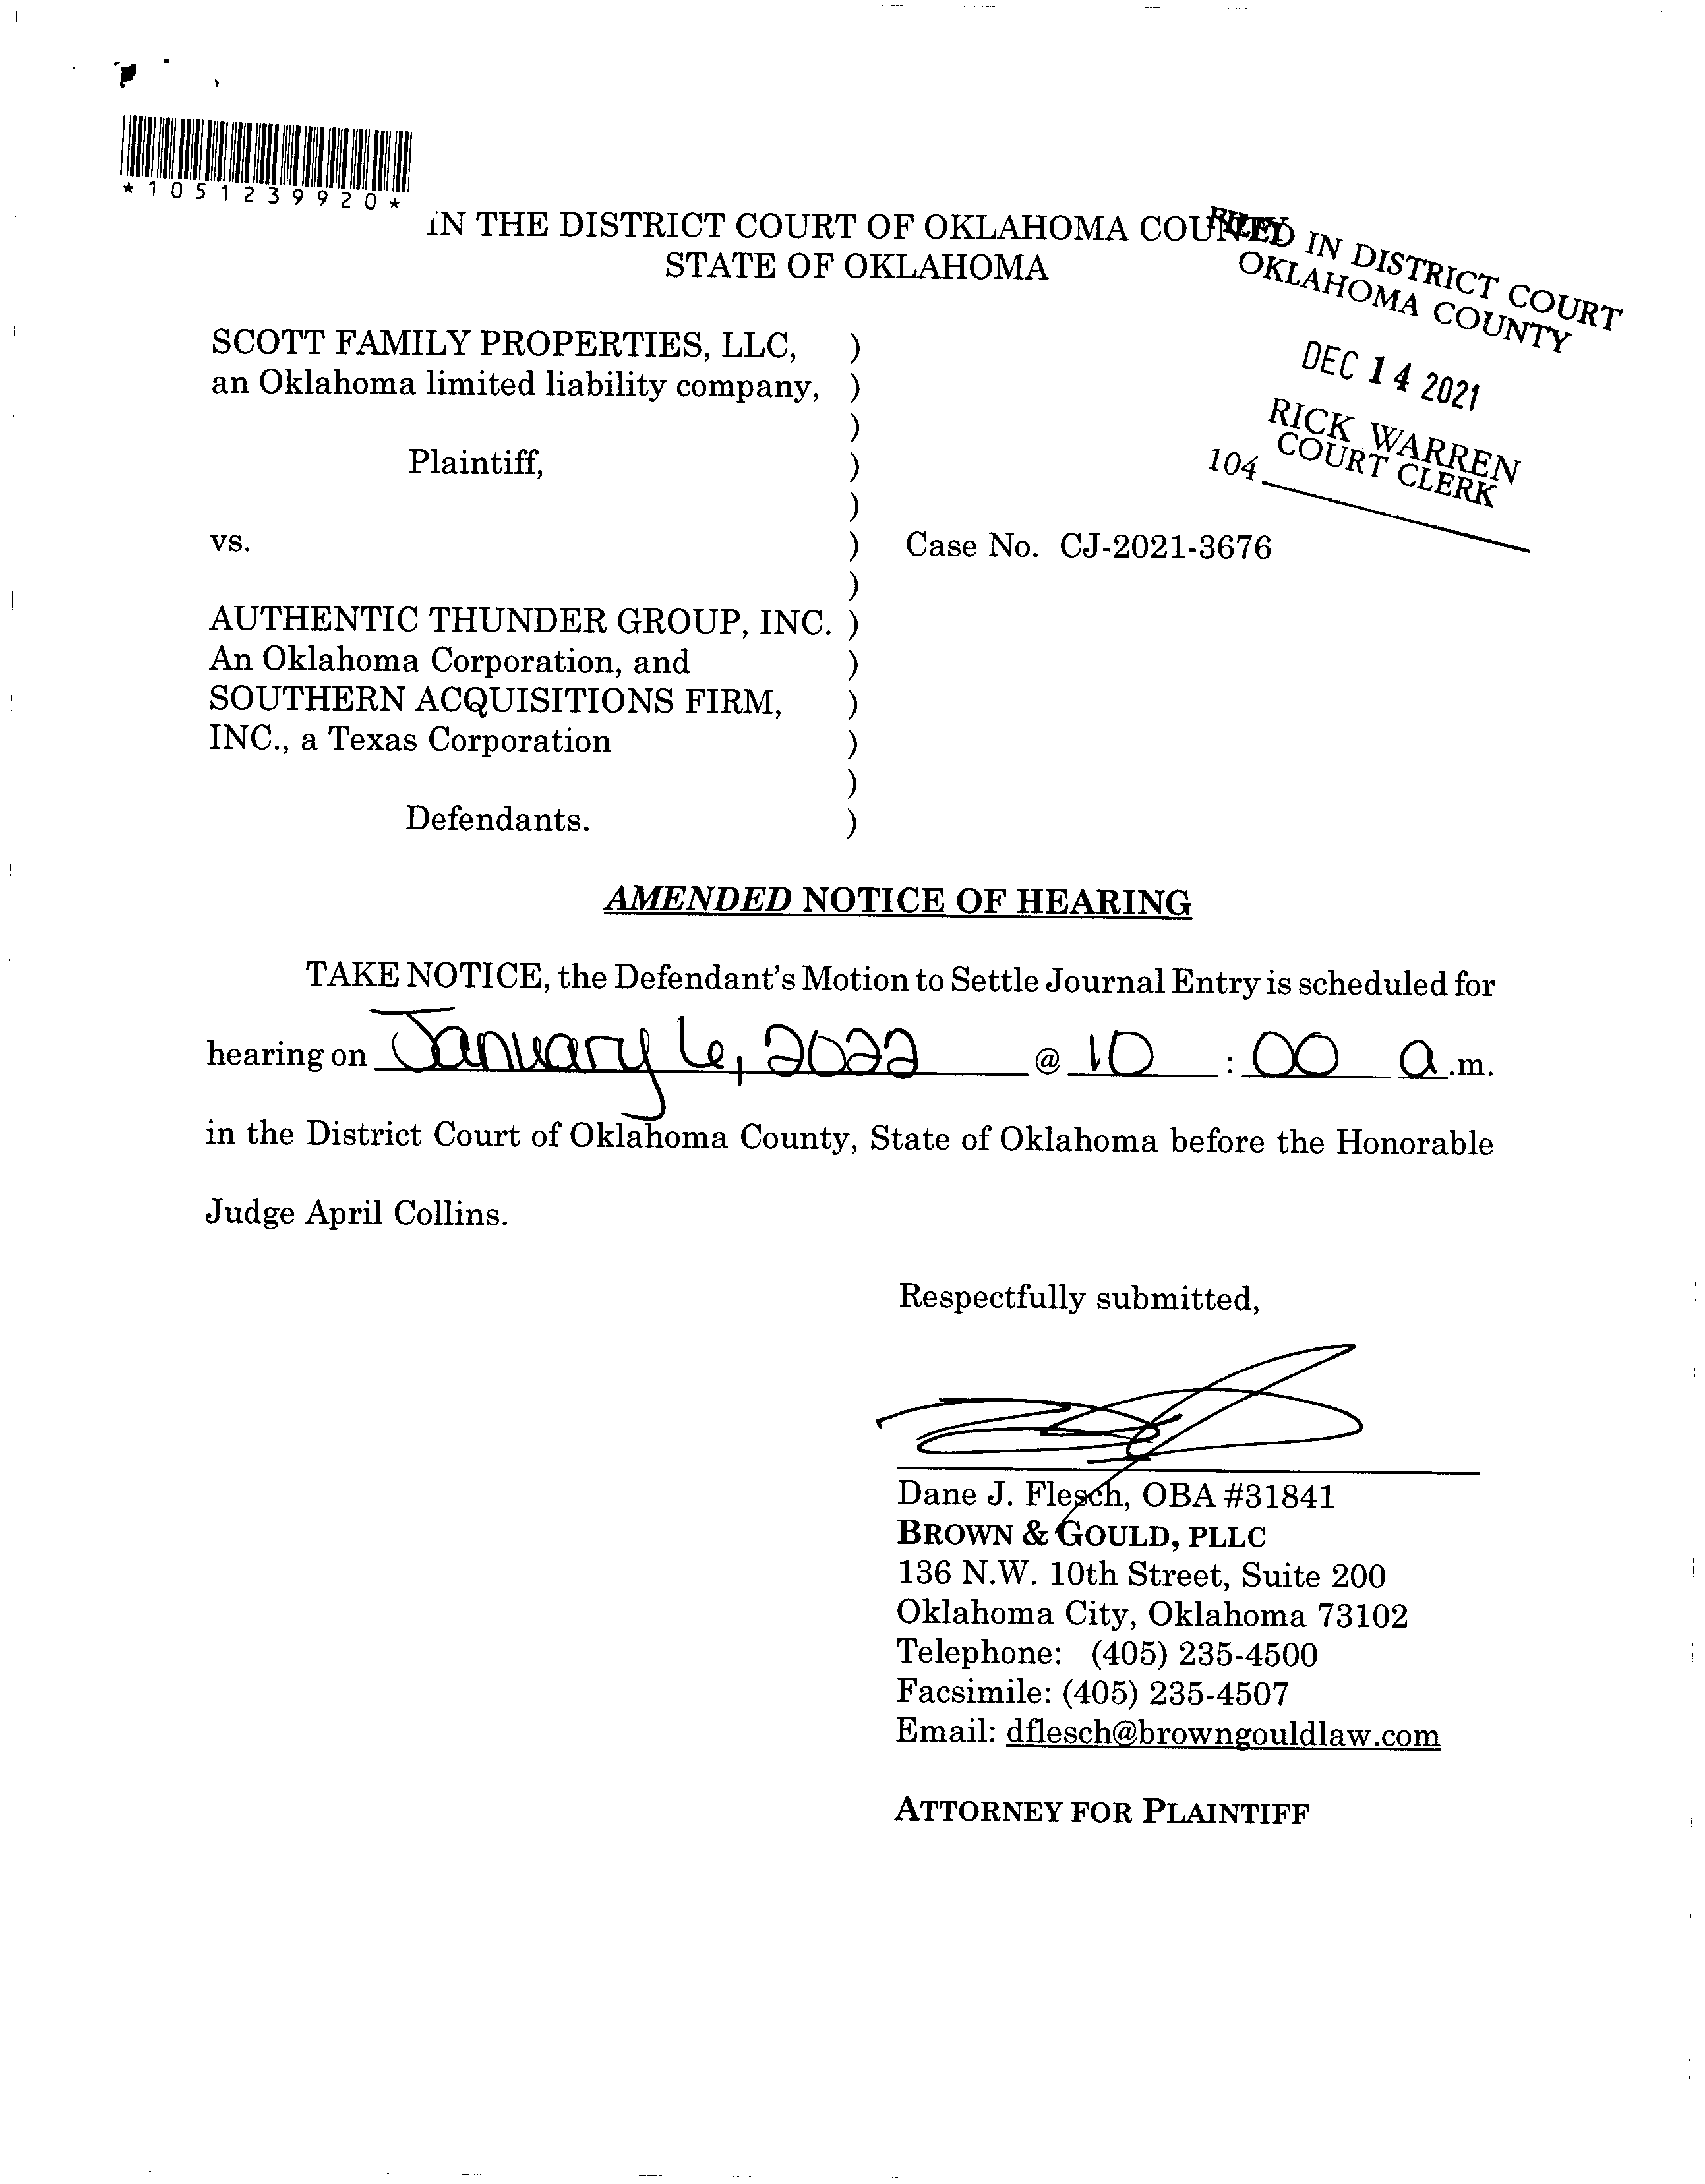 *1051239920*
IN THE DISTRICT COURT OF OKLAHOMA COUNTY
STATE OF OKLAHOMA
FILED IN DISTRICT COURT
OKLAHOMA COUNTY
DEC 14 2021
RICK WARREN
COURT CLERK
104
SCOTT FAMILY PROPERTIES, LLC, )
an Oklahoma limited liability company, )
)
Plaintiff, )
)
vs. ) Case No. CJ-2021-3676
)
AUTHENTIC THUNDER GROUP, INC. )
An Oklahoma Corporation, and )
SOUTHERN ACQUISITIONS FIRM, )
INC., a Texas Corporation )
)
Defendants. )
AMENDED NOTICE OF HEARING
TAKE NOTICE, the Defendant's Motion to Settle Journal Entry is scheduled for
hearing on January 6, 2022 @ 10 : 00 a.m.
in the District Court of Oklahoma County, State of Oklahoma before the Honorable
Judge April Collins.
Respectfully submitted,
Dane J. Flesch, OBA #31841
BROWN & GOULD, PLLC
136 N.W. 10th Street, Suite 200
Oklahoma City, Oklahoma 73102
Telephone: (405) 235-4500
Facsimile: (405) 235-4507
Email: dflesch@browngouldlaw.com
ATTORNEY FOR PLAINTIFF